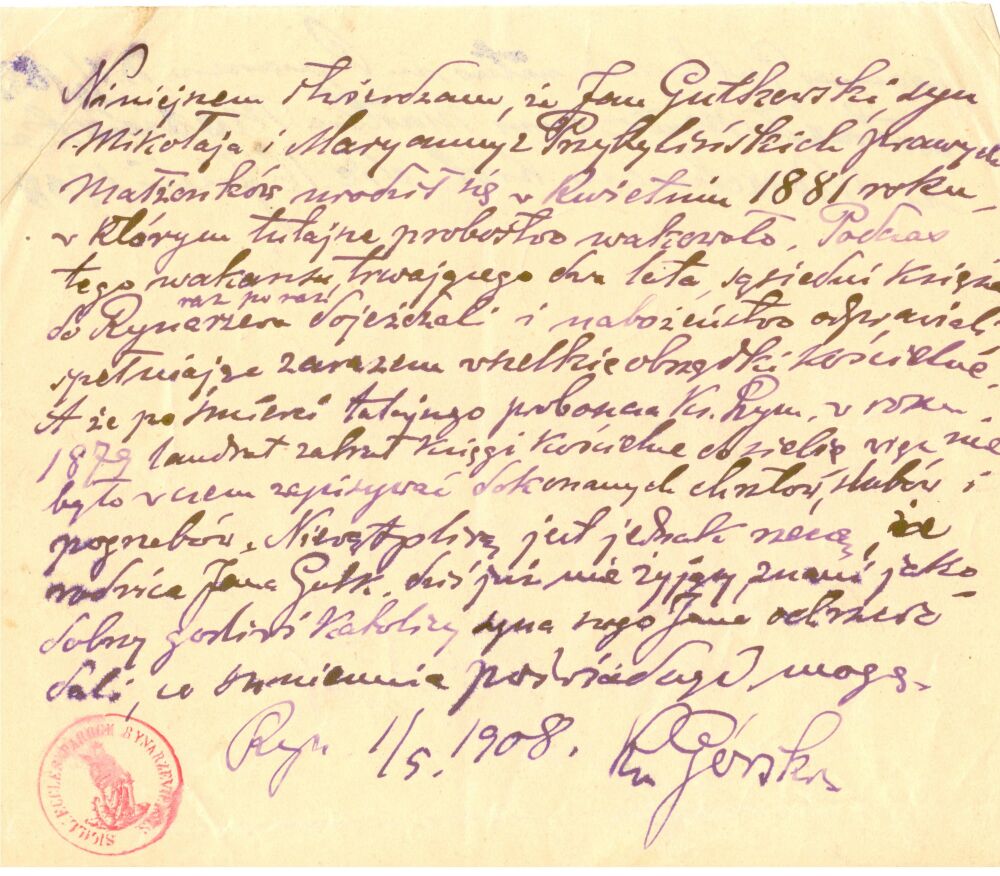 Niniejszem stwierdzam, że Jan Gutkowski, syn
Mikołaja i Maryanny z Przybylińskich prawych
małżonków urodził się w kwietniu 1881 roku,
w którym tutajsze probostwo wakowało. Podczas
tego wakansu, trwającego dwa lata, sąsiedni księża
raz po raz
do Rynarzewa dojeżdżali i nabożeństwo odprawiali
spełniając zarazem wszelkie obrządki kościelne.
A że po śmierci tutajszego proboszcza Ks. Rym. w roku
1879 landrat zabrał księgi kościelne do siebie, więc nie
było w czem zapisywać dokonanych chrztów, ślubów i
pogrzebów. Niewątpliwą jest jednak rzeczą, że
rodzice Jana Gutk. dziś już nie żyjący, znani jako
dobrzy godziwi katolicy syna swego Jana ochrzcić
dali, co sumiennie poświadczyć mogę.
Ryn. 1/5. 1908. Ks Górski
SIGILL. ECCLES. PAROCH RYNARZEVIENSIS